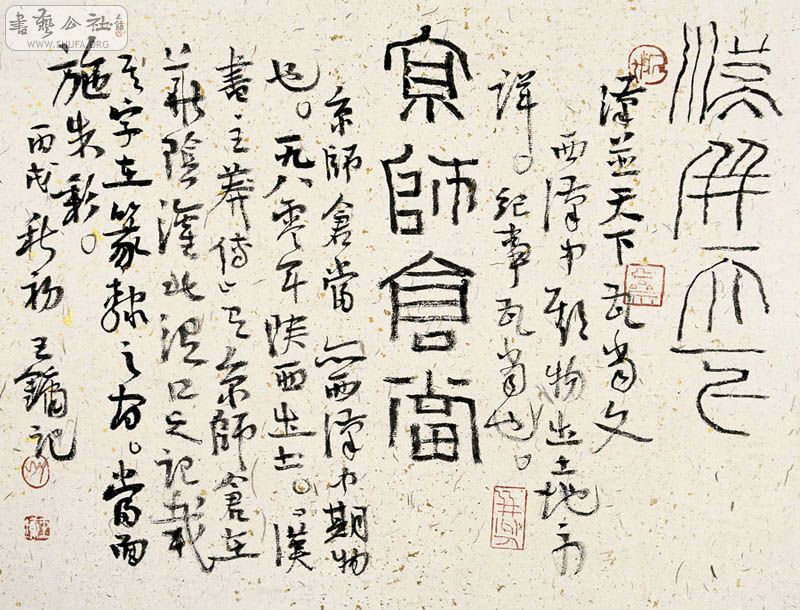 書藝公社
WWW.SHUFA.ORG
漢并天下
漢並天下瓦當文
西漢中期物出土地不
詳。紀事瓦當也。
京師倉當
京師倉當亦西漢中期物
也。一九八零年陝西出土。漢
書王莽傳京師倉在
華陰灌北渭口之記載
其字在篆隸之间。當面
施朱彩。
丙戌秋初王鏞記